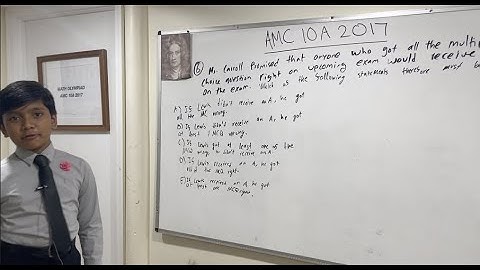 AMC 10A 2017
MATH OLYMPIAD
AMC 10A 2017
⑥ Mr. Carroll Promised that anyone who got all the multi
choice question right on upcoming exam would receive
on the exam. Which of the following statements therefore must b
A) If Lewis didn't receive an A, he got
all the MC wrong.
B) If Lewis didn't receive an A, he got
at least 1 MCQ wrong.
C) If Lewis got at least one of the
MCQ wrong, he didn't receive an A.
D) If Lewis received an A, he got
all the MCQ right.
E) If Lewis received an A, he got
at least one MCQ right.